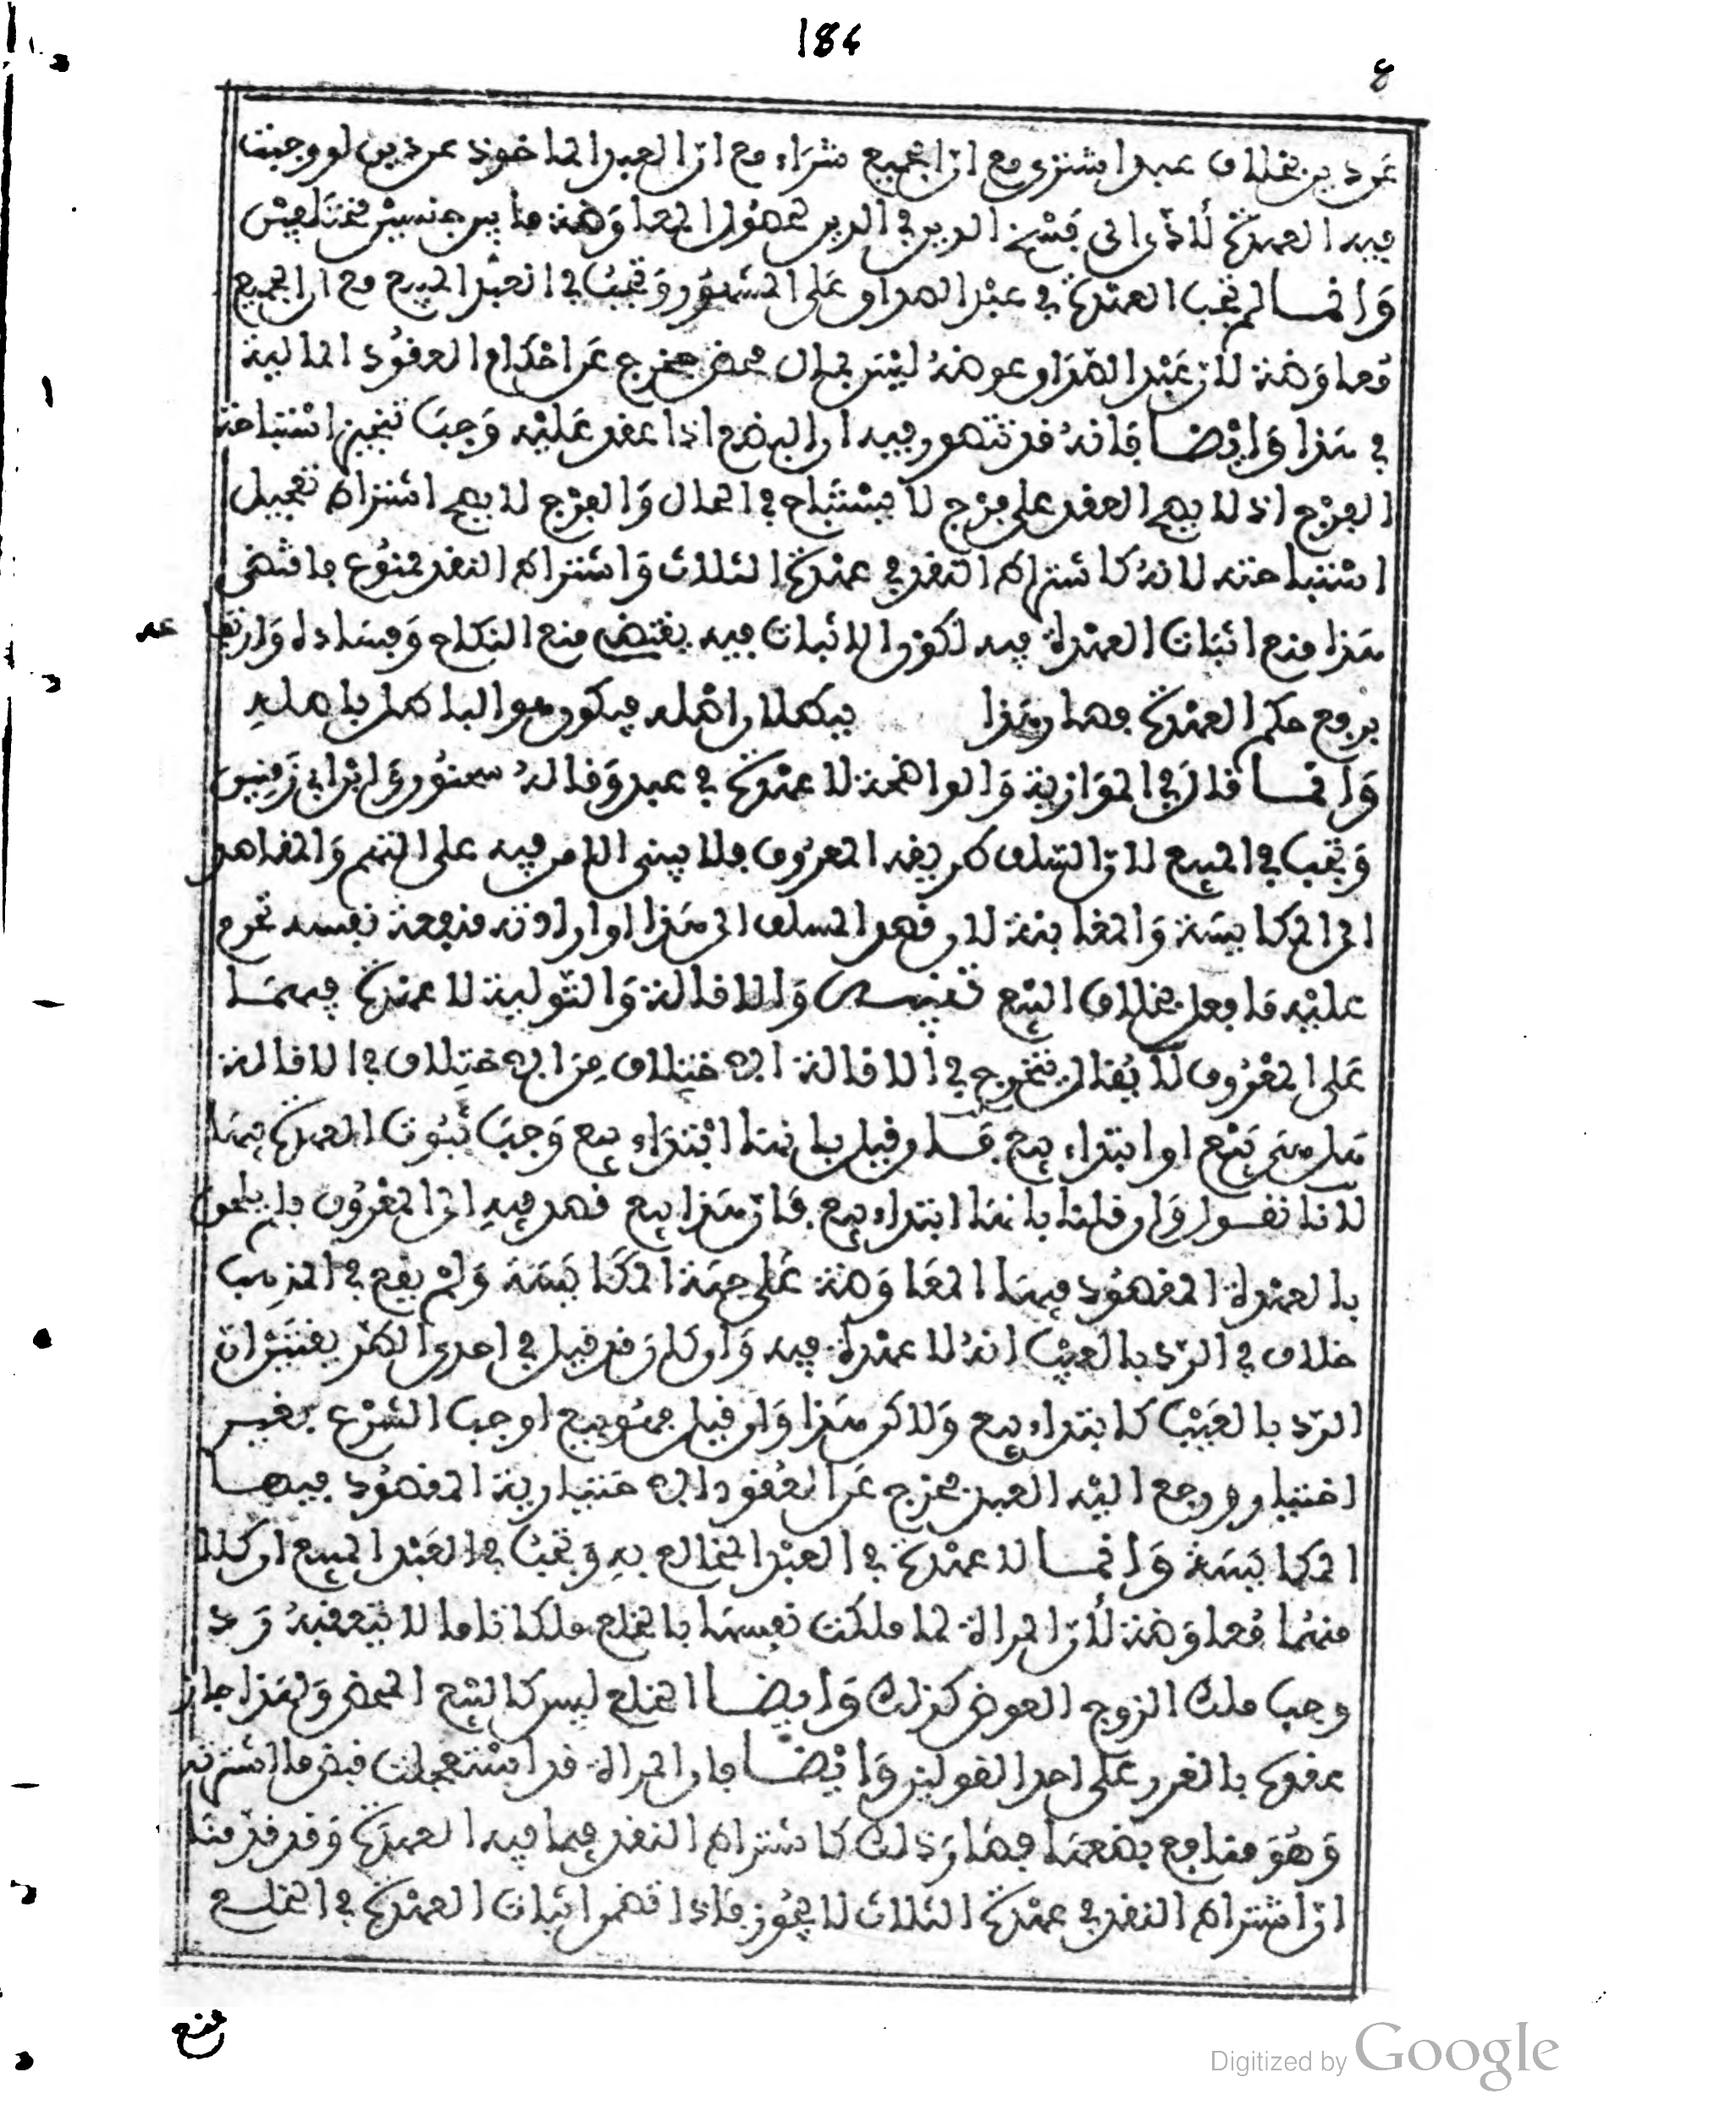 184
8
عن دين بخلاف عبد اشتري مع ان الجميع شراء مع ان العبد الماخوذ عن دين لو وجبت
فيه العهدة لأدى الى فسخ الدين في الدين لحصول المعاوضة ما بين جنسين مختلفين
وانما لم تجب العهدة في عبد الصداق على المشهور وتجب في العبد المبيع مع ان الجميع
معاوضة لان عبد الصداق عوضه ليس بمال محض فخرج عن احكام العقود المالية
في هذا وايضا فانه قد تتصور فيه ان البضع اذا عقد عليه وجب تنجيز استباحة
الفرج اذ لا يصح العقد على فرج لا يستباح في الحال والفرج لا يصح اشتراط تعجيل
استباحته لانه كاشتراط النقد في عهدة الثلاث واشتراط النقد ممنوع فاقتضى
هذا منع اثبات العهدة فيه لكون الاثبات فيه يقتضي منع النكاح وفساده وان
عد
يرفع حكم العهدة فصار هذا فيبطل اصله فيكون هو الباطل باصله
وانما قال في الموازية والواضحة لا عهدة في عبد وقاله سحنون وابن ابي زمنين
وتجب في المبيع لان السلف طريقه المعروف فلا يبنى الامر فيه على التتميم والمقاصد
الى المكايسة والمغابنة لان قصد المسلف الى هذا او ارادته منفعة نفسه تحرم
عليه ما فعل بخلاف البيع تنبيه والاقالة والتولية لا عهدة فيهما
على المعروف لا يقال يتخرج في الاقالة الاختلاف من الاختلاف في الاقالة
هل هي بيع او ابتداء بيع فان قيل بانها ابتداء بيع وجب ثبوت العهدة فيها
لانا نقول وان قلنا بانها ابتداء بيع فان هذا بيع قصد فيه الى المعروف فلم يلحق
بالعهدة المقصود فيها المعاوضة على جهة المكايسة ولم يقع في المذهب
خلاف في الرد بالعيب انه لا عهدة فيه وان كان قد قيل في احدى الطريقتين ان
الرد بالعيب كابتداء بيع ولاكن هذا وان قيل فهو بيع اوجب الشرع بغير
اختياره ورجع اليه العبد فخرج عن العقود الاختيارية المقصود فيها
المكايسة وانما لا عهدة في العبد المخالع به وتجب في العبد المبيع وكلا
منهما معاوضة لان المراة لما ملكت نفسها بالخلع ملكا تاما لا يتعقبه رد
وجب ملك الزوج العوض كذلك وايضا الخلع ليس كالبيع المحض ولهذا جاز
عقده بالغرر على احد القولين وايضا فان المراة قد استعجلت قبض ما اشترته
وهو منافع بضعها فصار ذلك كاشتراط النقد فيما فيه العهدة وقد قدمنا
ان اشتراط النقد في عهدة الثلاث لا يجوز فاذا تضمن اثبات العهدة في الخلع
منع
Digitized by Google